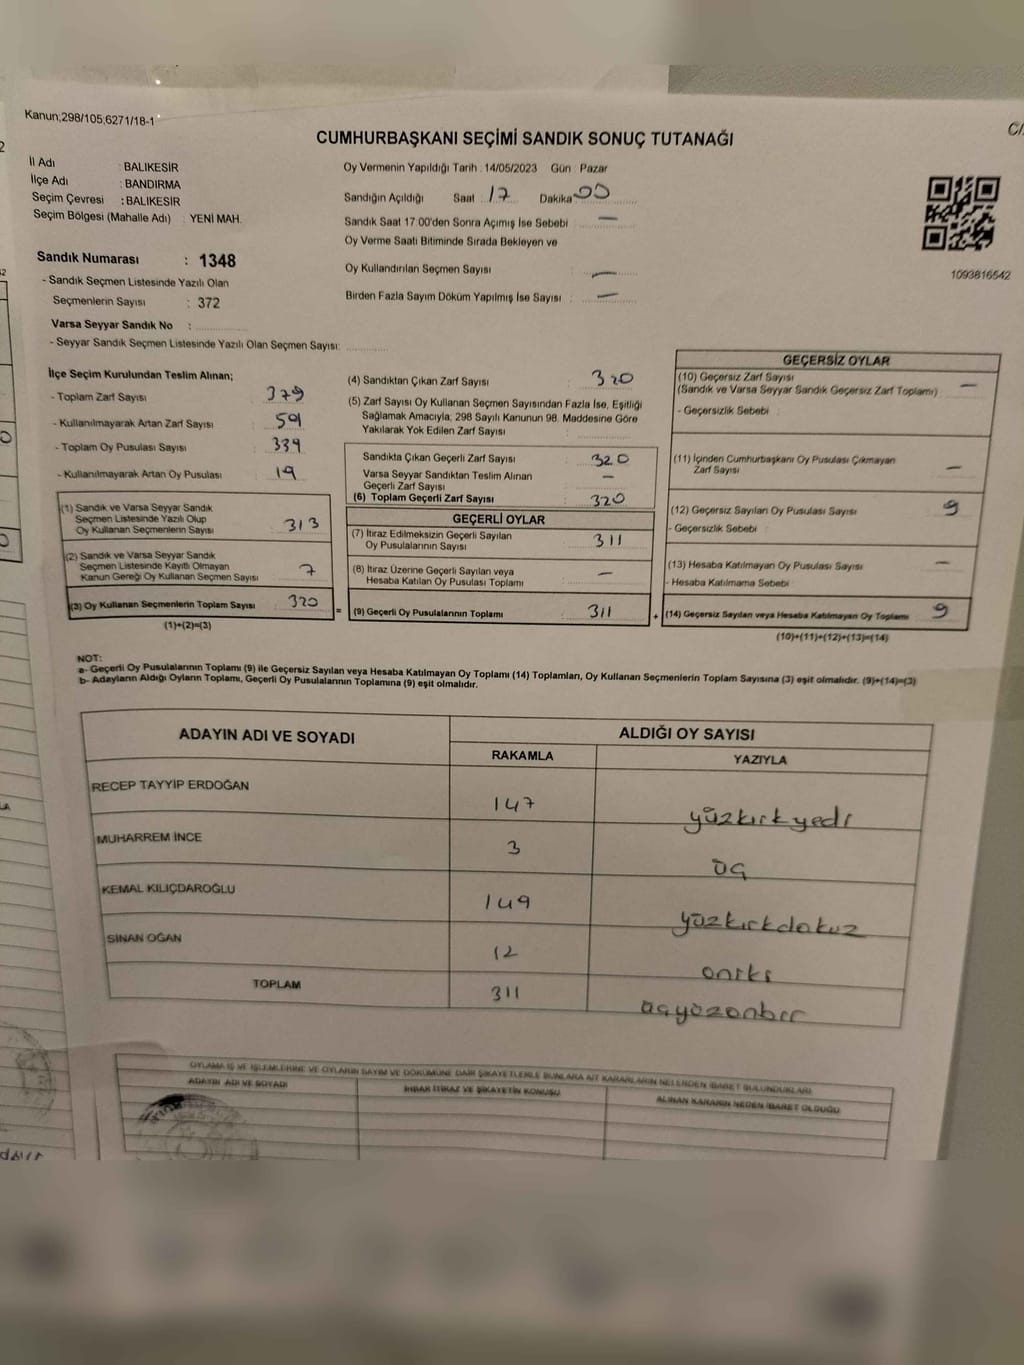 Kanun;298/105,6271/18-1
CUMHURBAŞKANI SEÇİMİ SANDIK SONUÇ TUTANAĞI
İl Adı : BALIKESİR
İlçe Adı : BANDIRMA
Seçim Çevresi : BALIKESİR
Seçim Bölgesi (Mahalle Adı) : YENİ MAH.
Oy Vermenin Yapıldığı Tarih : 14/05/2023 Gün : Pazar
Sandığın Açıldığı Saat : 17 Dakika : 00
Sandık Saat 17:00'den Sonra Açımış İse Sebebi : —
Oy Verme Saati Bitiminde Sırada Bekleyen ve
Oy Kullandırılan Seçmen Sayısı : —
Birden Fazla Sayım Döküm Yapılmış İse Sayısı : —
1093816542
Sandık Numarası : 1348
- Sandık Seçmen Listesinde Yazılı Olan
Seçmenlerin Sayısı : 372
Varsa Seyyar Sandık No :
- Seyyar Sandık Seçmen Listesinde Yazılı Olan Seçmen Sayısı:
İlçe Seçim Kurulundan Teslim Alınan;
- Toplam Zarf Sayısı : 379
- Kullanılmayarak Artan Zarf Sayısı : 591
- Toplam Oy Pusulası Sayısı : 339
- Kullanılmayarak Artan Oy Pusulası : 19
(1) Sandık ve Varsa Seyyar Sandık
Seçmen Listesinde Yazılı Olup
Oy Kullanan Seçmenlerin Sayısı : 313
(2) Sandık ve Varsa Seyyar Sandık
Seçmen Listesinde Kayıtlı Olmayan
Kanun Gereği Oy Kullanan Seçmen Sayısı : 7
(3) Oy Kullanan Seçmenlerin Toplam Sayısı : 320
(1)+(2)=(3)
(4) Sandıktan Çıkan Zarf Sayısı : 320
(5) Zarf Sayısı Oy Kullanan Seçmen Sayısından Fazla İse, Eşitliği
Sağlamak Amacıyla; 298 Sayılı Kanunun 98. Maddesine Göre
Yakılarak Yok Edilen Zarf Sayısı :
Sandıkta Çıkan Geçerli Zarf Sayısı : 320
Varsa Seyyar Sandıktan Teslim Alınan
Geçerli Zarf Sayısı : —
(6) Toplam Geçerli Zarf Sayısı : 320
GEÇERLİ OYLAR
(7) İtiraz Edilmeksizin Geçerli Sayılan
Oy Pusulalarının Sayısı : 311
(8) İtiraz Üzerine Geçerli Sayılan veya
Hesaba Katılan Oy Pusulası Toplamı : —
= (9) Geçerli Oy Pusulalarının Toplamı : 311
GEÇERSİZ OYLAR
(10) Geçersiz Zarf Sayısı
(Sandık ve Varsa Seyyar Sandık Geçersiz Zarf Toplamı) : —
- Geçersizlik Sebebi :
(11) İçinden Cumhurbaşkanı Oy Pusulası Çıkmayan
Zarf Sayısı : —
(12) Geçersiz Sayılan Oy Pusulası Sayısı : 9
- Geçersizlik Sebebi :
(13) Hesaba Katılmayan Oy Pusulası Sayısı : —
- Hesaba Katılmama Sebebi :
+ (14) Geçersiz Sayılan veya Hesaba Katılmayan Oy Toplamı : 9
(10)+(11)+(12)+(13)=(14)
NOT:
a- Geçerli Oy Pusulalarının Toplamı (9) ile Geçersiz Sayılan veya Hesaba Katılmayan Oy Toplamı (14) Toplamları, Oy Kullanan Seçmenlerin Toplam Sayısına (3) eşit olmalıdır. (9)+(14)=(3)
b- Adayların Aldığı Oyların Toplamı, Geçerli Oy Pusulalarının Toplamına (9) eşit olmalıdır.
ADAYIN ADI VE SOYADI
ALDIĞI OY SAYISI
RAKAMLA YAZIYLA
RECEP TAYYİP ERDOĞAN 147 yüzkırkyedi
MUHARREM İNCE 3 üç
KEMAL KILIÇDAROĞLU 149 yüzkırkdokuz
SİNAN OĞAN 12 oniki
TOPLAM 311 üçyüzonbir
OYLAMA İŞ VE İŞLEMLERİNE VE OYLARIN SAYIM VE DÖKÜMÜNE DAİR ŞİKAYETLERLE BUNLARA AİT KARARLARIN NELERDEN İBARET BULUNDUKLARI
ADAYIN ADI VE SOYADI
İHBAR İTİRAZ VE ŞİKAYETİN KONUSU
ALINAN KARARIN NEDEN İBARET OLDUĞU